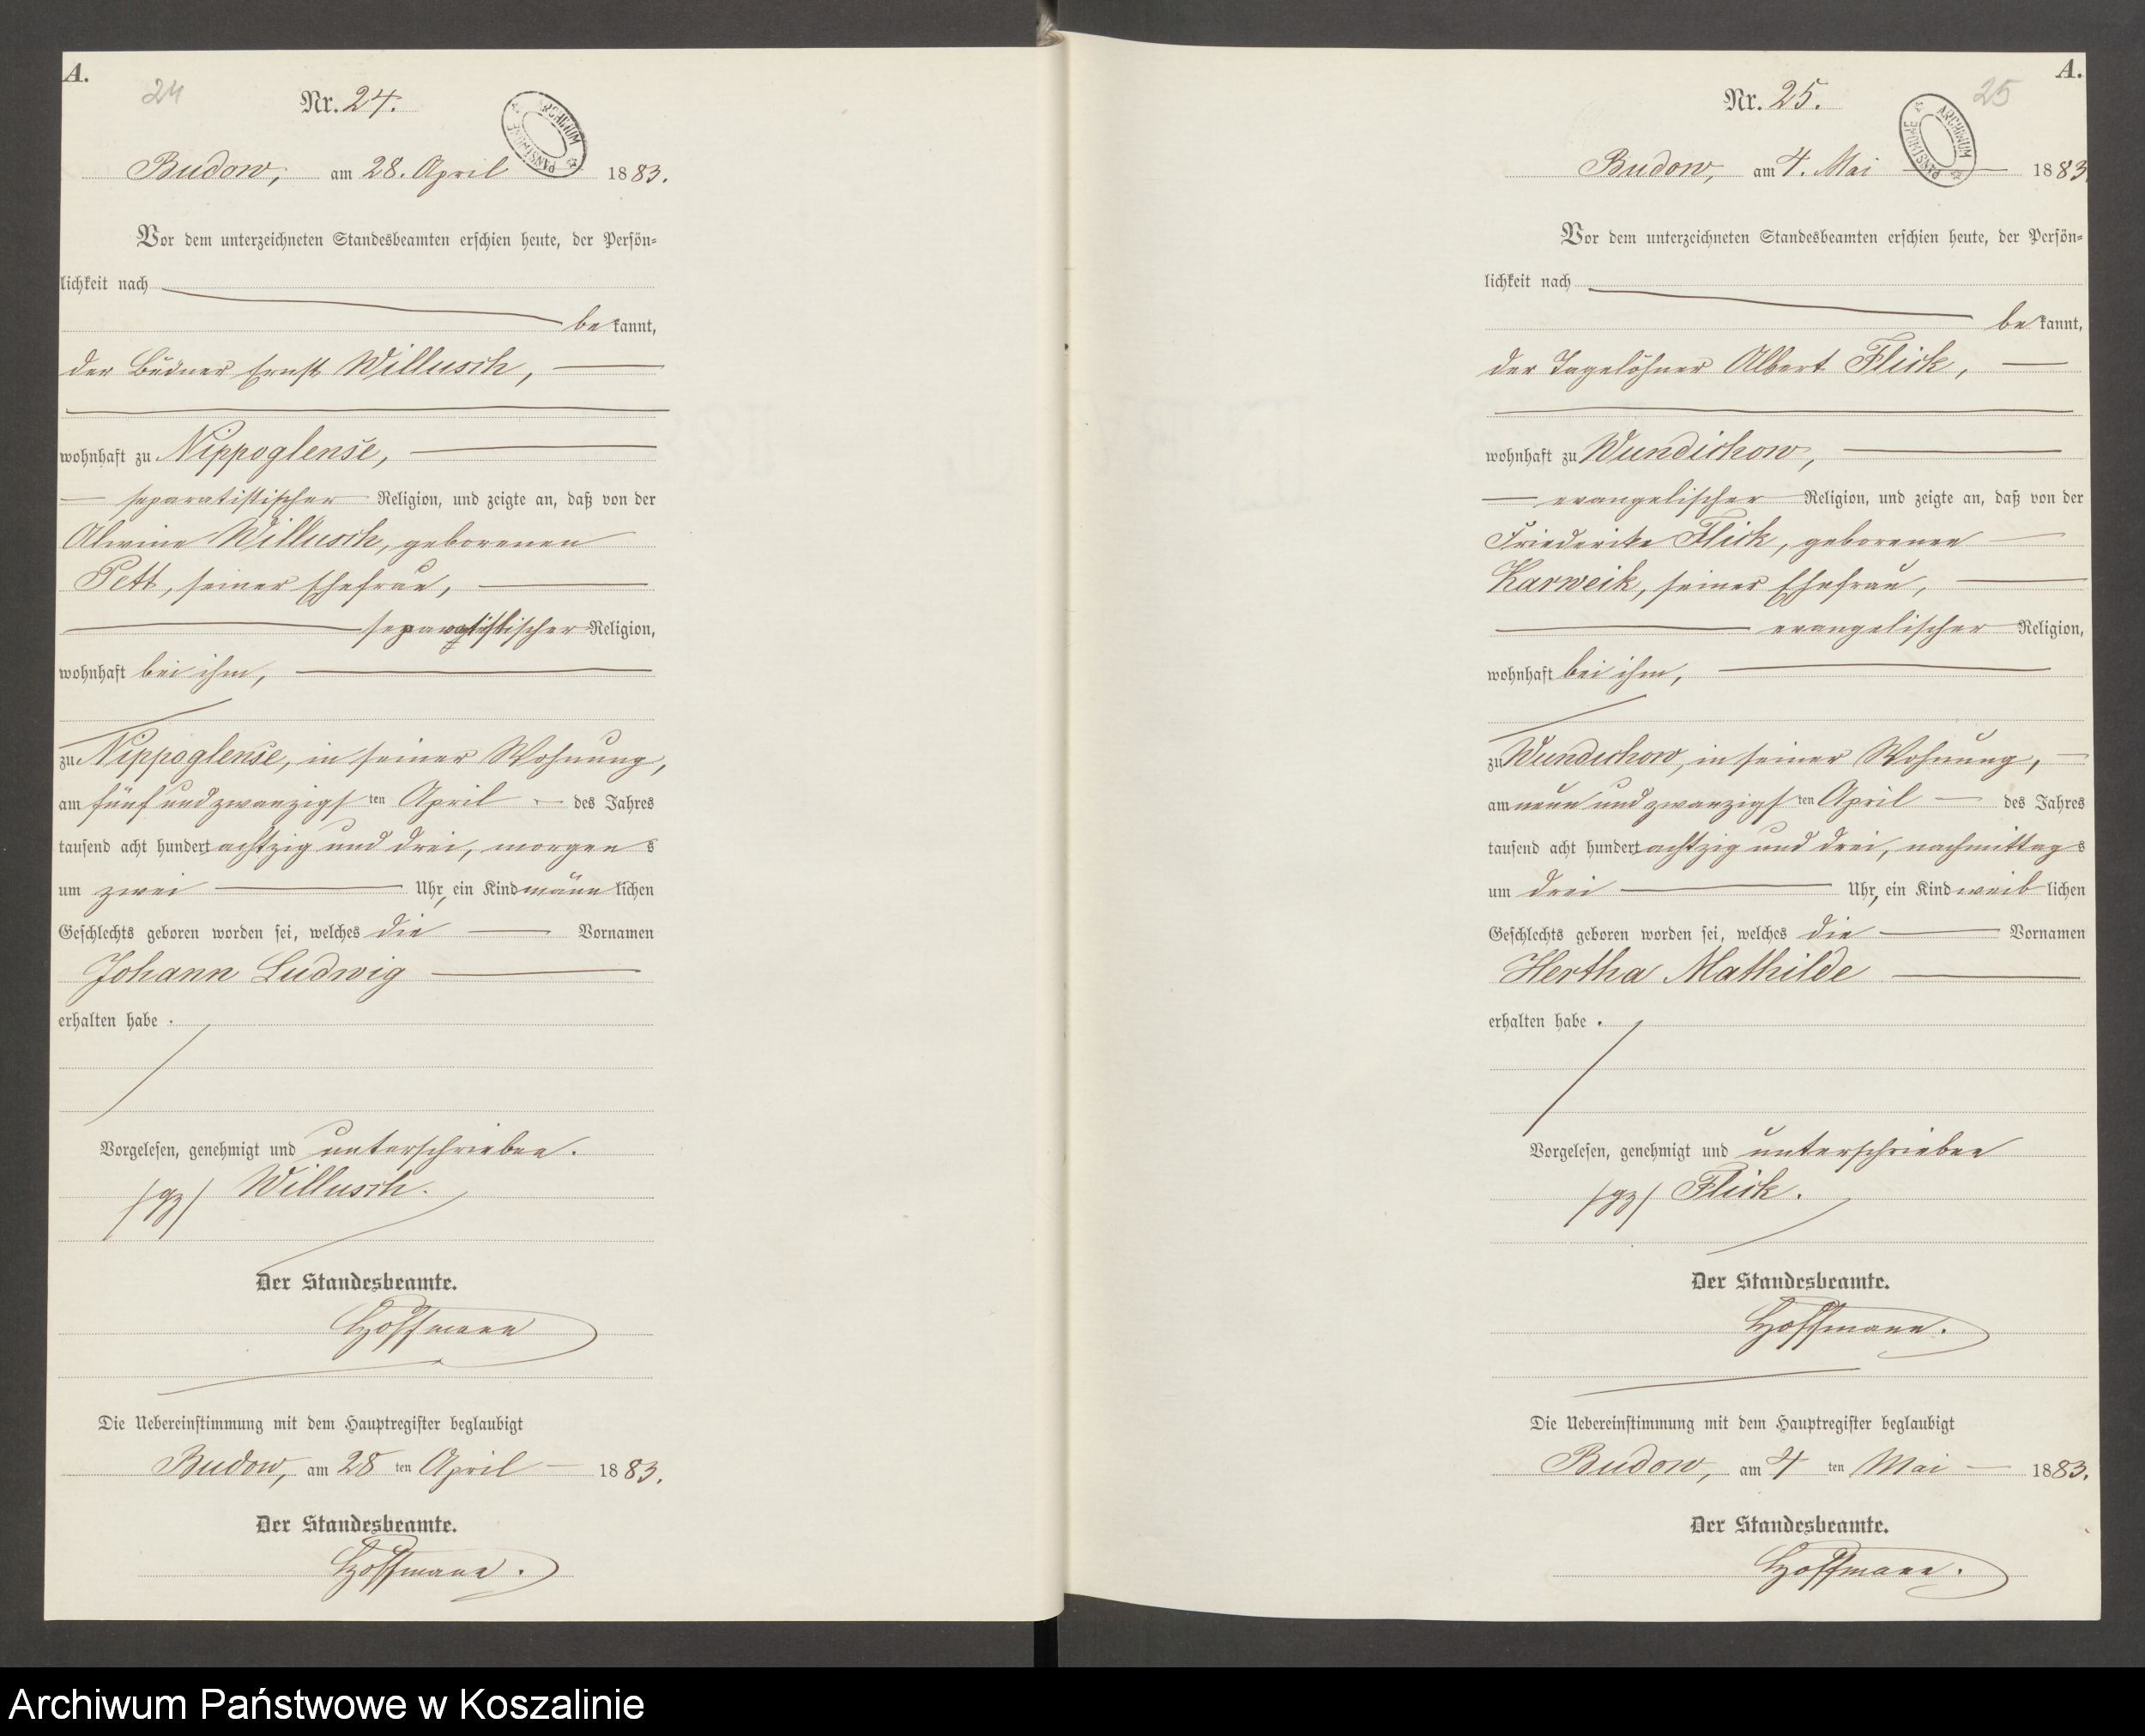 A.
24
Nr. 24.
ARCHIWUM PAŃSTWOWE
Budow, am 28. April 1883.
Vor dem unterzeichneten Standesbeamten erschien heute, der Persön-
lichkeit nach
bekannt,
der Büdner Ernst Willusch,
wohnhaft zu Nippoglense,
separatistischer Religion, und zeigte an, daß von der
Alwine Willusch, geborenen
Pett, seiner Ehefrau,
separatistischer Religion,
wohnhaft bei ihm,
zu Nippoglense, in seiner Wohnung,
am fünf und zwanzigsten April des Jahres
tausend acht hundert achtzig und drei, morgens
um zwei Uhr, ein Kind männlichen
Geschlechts geboren worden sei, welches die Vornamen
Johann Ludwig
erhalten habe.
Vorgelesen, genehmigt und unterschrieben.
/gz/ Willusch.
Der Standesbeamte.
Hoffmann
Die Uebereinstimmung mit dem Hauptregister beglaubigt
Budow, am 28 ten April 1883.
Der Standesbeamte.
Hoffmann.
A.
25
Nr. 25.
ARCHIWUM PAŃSTWOWE
Budow, am 4. Mai 1883
Vor dem unterzeichneten Standesbeamten erschien heute, der Persön-
lichkeit nach
bekannt,
der Tagelöhner Albert Flick,
wohnhaft zu Wundichow,
evangelischer Religion, und zeigte an, daß von der
Friederike Flick, geborenen
Karweik, seiner Ehefrau,
evangelischer Religion,
wohnhaft bei ihm,
zu Wundichow, in seiner Wohnung,
am neun und zwanzigsten April des Jahres
tausend acht hundert achtzig und drei, nachmittags
um drei Uhr, ein Kind weiblichen
Geschlechts geboren worden sei, welches die Vornamen
Hertha Mathilde
erhalten habe.
Vorgelesen, genehmigt und unterschrieben
/gz/ Flick.
Der Standesbeamte.
Hoffmann.
Die Uebereinstimmung mit dem Hauptregister beglaubigt
Budow, am 4 ten Mai 1883.
Der Standesbeamte.
Hoffmann.
Archiwum Państwowe w Koszalinie